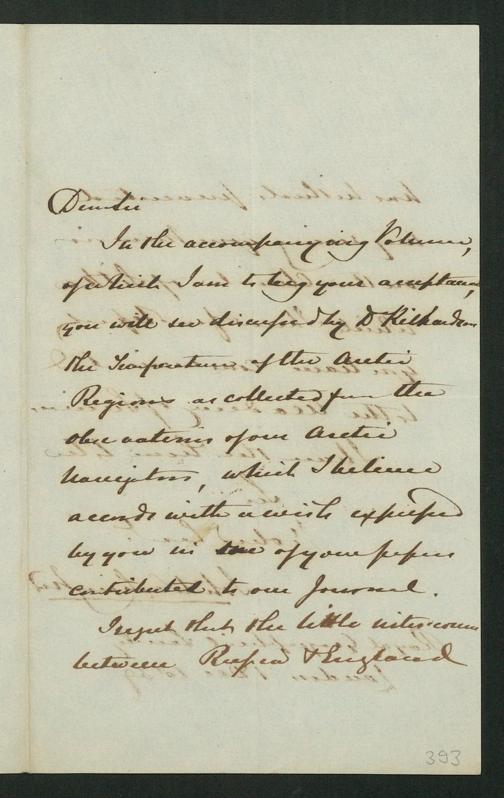 Dear Sir
In the accompanying Volume,
of which I am to beg your acceptance
you will see discussed by Dr Richardson
the Temperature of the Arctic
Regions as collected from the
observations of our Arctic
Navigators, which I believe
accords with a wish expressed
by you in one of your papers
contributed to our Journal.
I regret that the little intercourse
between Russia & England
393